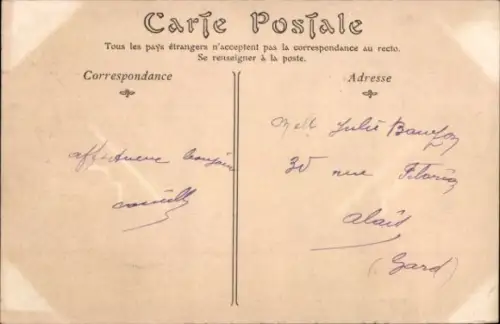 Carte Postale
Tous les pays étrangers n'acceptent pas la correspondance au recto.
Se renseigner à la poste.
Correspondance
Adresse
Melle Julie
30 rue Florian
Alais
(Gard)